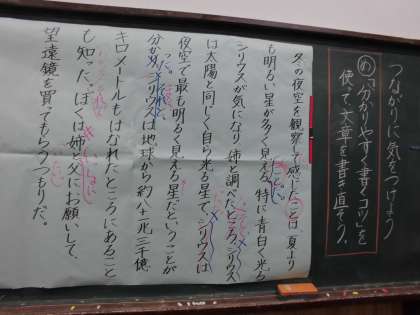 つながりに気をつけよう
め「分かりやすく書くコツ」を
使って文章を書き直そう。
冬の夜空を観察して感じたことは、夏より
も明るい星が多く見える。特に青白く光る
シリウスが気になり姉と調べたところ、シリウス
は太陽と同じく自ら光る星で、シリウスは
夜空で最も明るく見える星だということが
分かり、シリウスは地球から約八十兆三千億
キロメートルもはなれたところにあること
も知った。ぼくは姉と父にお願いして、
望遠鏡を買てもらうつもりだ。